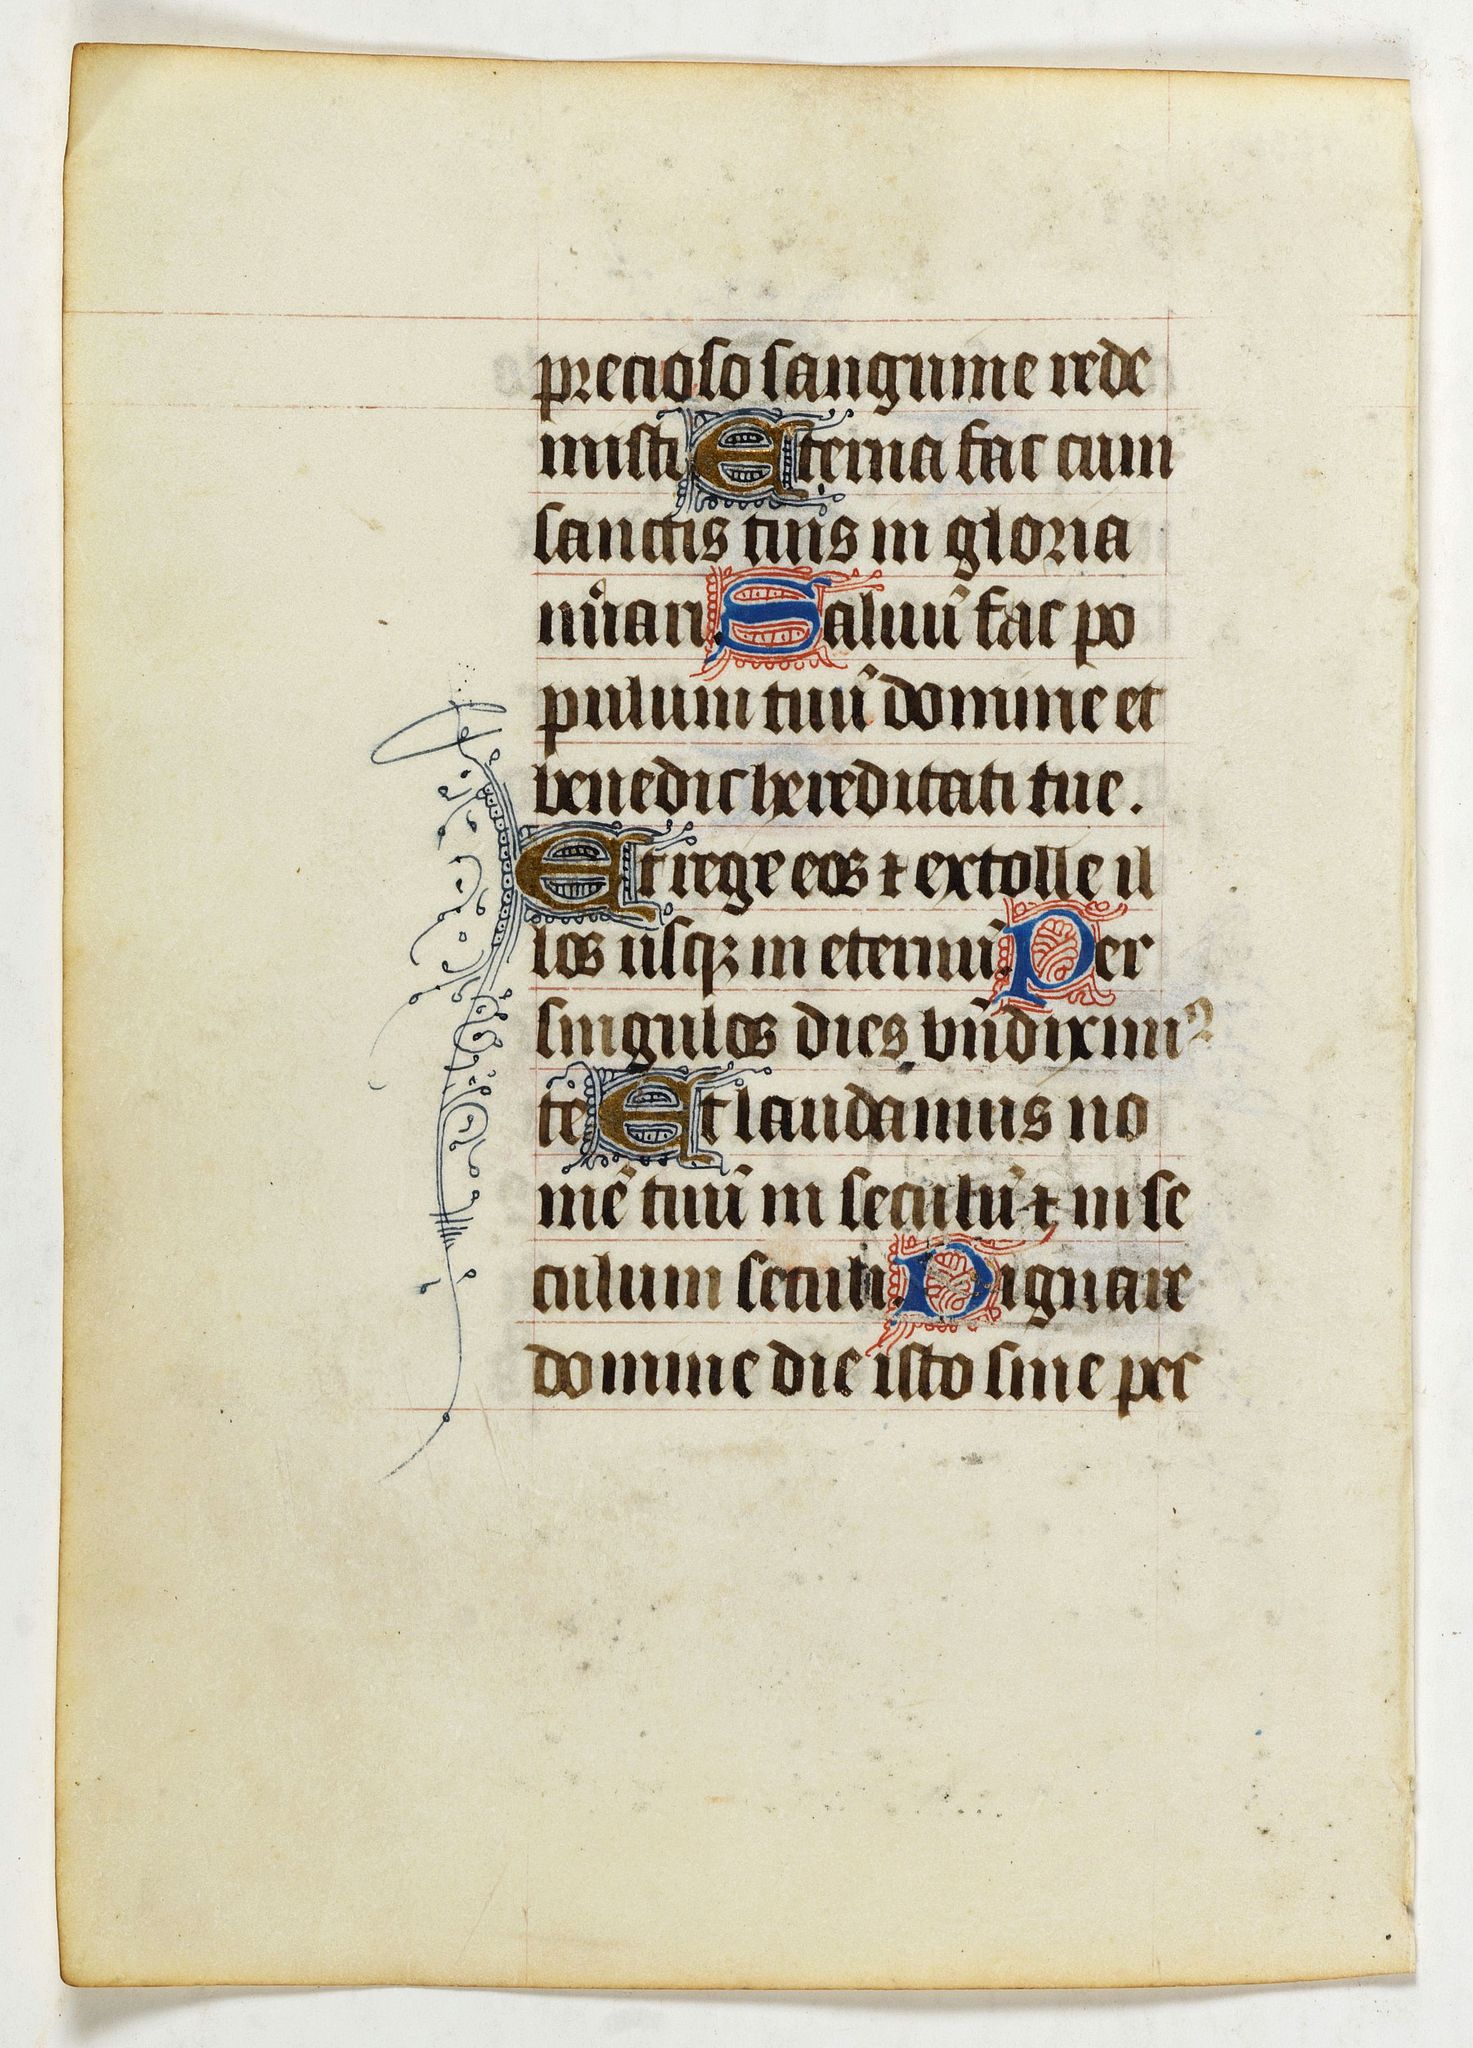 precioso sanguine rede
misti Eterna fac cum
sanctis tuis in gloria
nu̾ari. Saluū fac po
pulum tuū domine et
benedic hereditati tue.
Et rege eos ⁊ extolle il
los usqꝫ in eternū. Per
singulos dies bn̄diximꝰ
te Et laudamus no
mē tuū in seculū ⁊ in se
culum seculi. Dignare
domine die isto sine pec